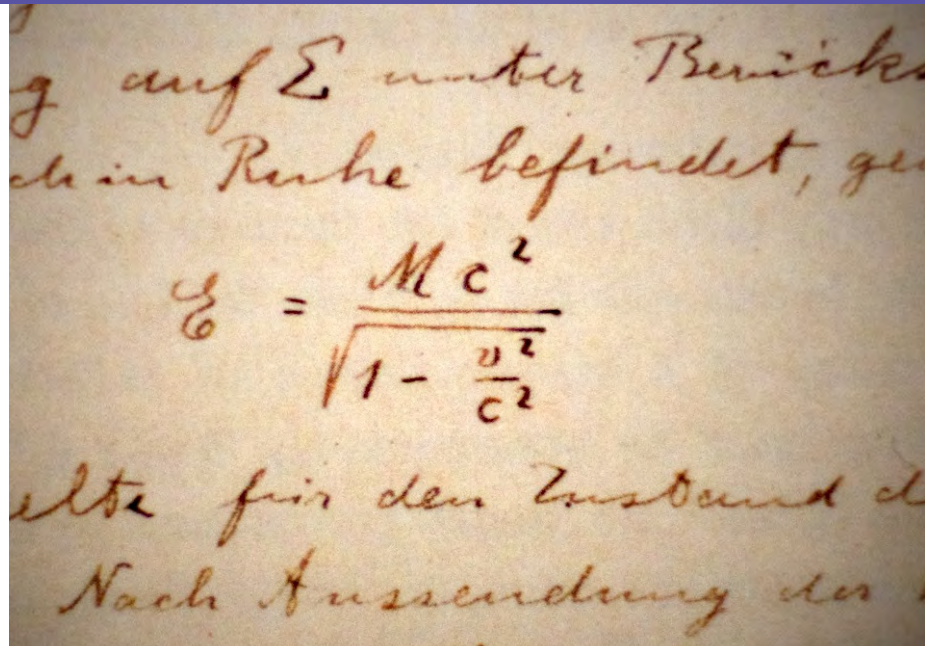 g auf Σ unter Berücks
ch in Ruhe befindet, ge
ℰ = M c² / √(1 - v²/c²)
elte für den Zustand d
Nach Aussendung der